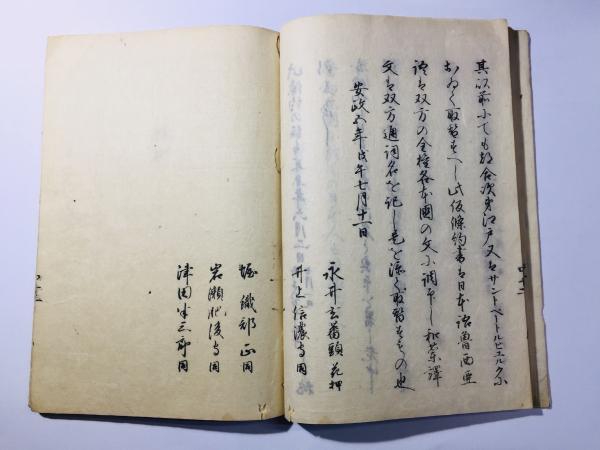 其以前にても都合次第江戸又はサントペートルビユルクに
おゐて取替すへし此仮條約書は日本語魯西亜
語は双方の全権各本國の文に調印し和蘭譯
文は双方通詞名を記し是を添く取替すもの也
安政五年戊午七月十一日
永井玄蕃頭花押
井上信濃守同
堀織部正同
岩瀬肥後守同
津田半三郎同